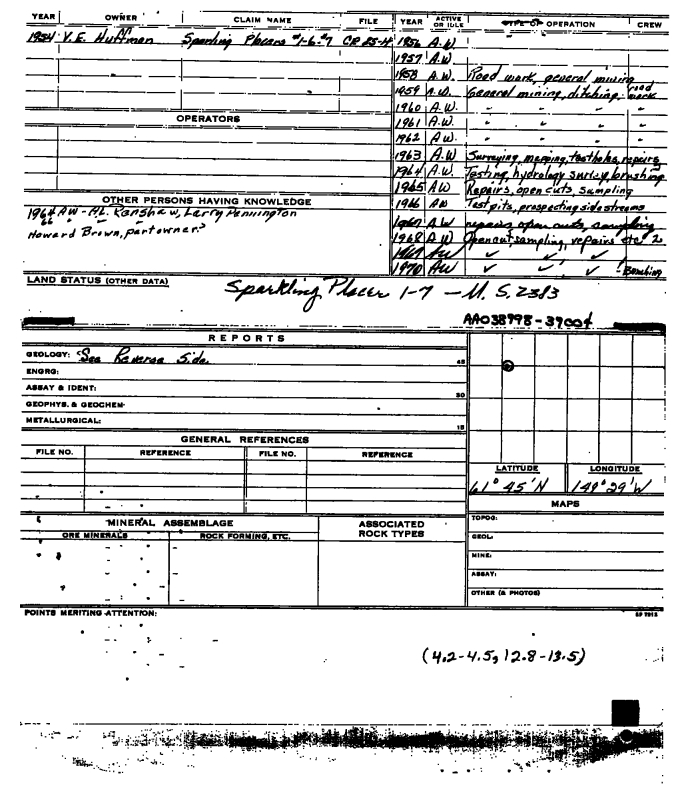 YEAR OWNER CLAIM NAME FILE YEAR ACTIVE OR IDLE TYPE OF OPERATION CREW
1954 V.E. Huffman Sparling Placers #1-6, #7 CR 25-H 1956 A.W.
1957 A.W.
1958 A.W. Road work, general mining
1959 A.W. General mining, ditching, road work
1960 A.W. " " " "
OPERATORS
1961 A.W. " " " "
1962 A.W. " " " "
1963 A.W. Surveying, mapping, testholes, repairs
1964 A.W. Testing, hydrology survey, brushing
1965 AW Repairs, open cuts, sampling
OTHER PERSONS HAVING KNOWLEDGE
1966 AW Test pits, prospecting side streams
1964 AW - AL. Ranshaw, Larry Pennington
66 " "
1967 A.W repairs, open cuts, sampling
Howard Brown, part owner?
1968 A.W Open cut, sampling, repairs etc 2
1969 AW ✓ ✓ ✓
1970 AW ✓ ✓ ✓
LAND STATUS (OTHER DATA)
Sparkling Placer 1-7 - M.S. 2383
AA038998-39004
REPORTS
GEOLOGY: See Reverse Side
45
ENGRG:
ASSAY & IDENT:
30
GEOPHYS. & GEOCHEM-
METALLURGICAL:
15
GENERAL REFERENCES
FILE NO. REFERENCE FILE NO. REFERENCE
LATITUDE LONGITUDE
61° 45' N 149° 29' W
MAPS
MINERAL ASSEMBLAGE ASSOCIATED ROCK TYPES
ORE MINERALS ROCK FORMING, ETC.
TOPOG:
GEOL:
MINE:
ASSAY:
OTHER (& PHOTOS)
POINTS MERITING ATTENTION:
(4.2-4.5, 12.8-13.5)